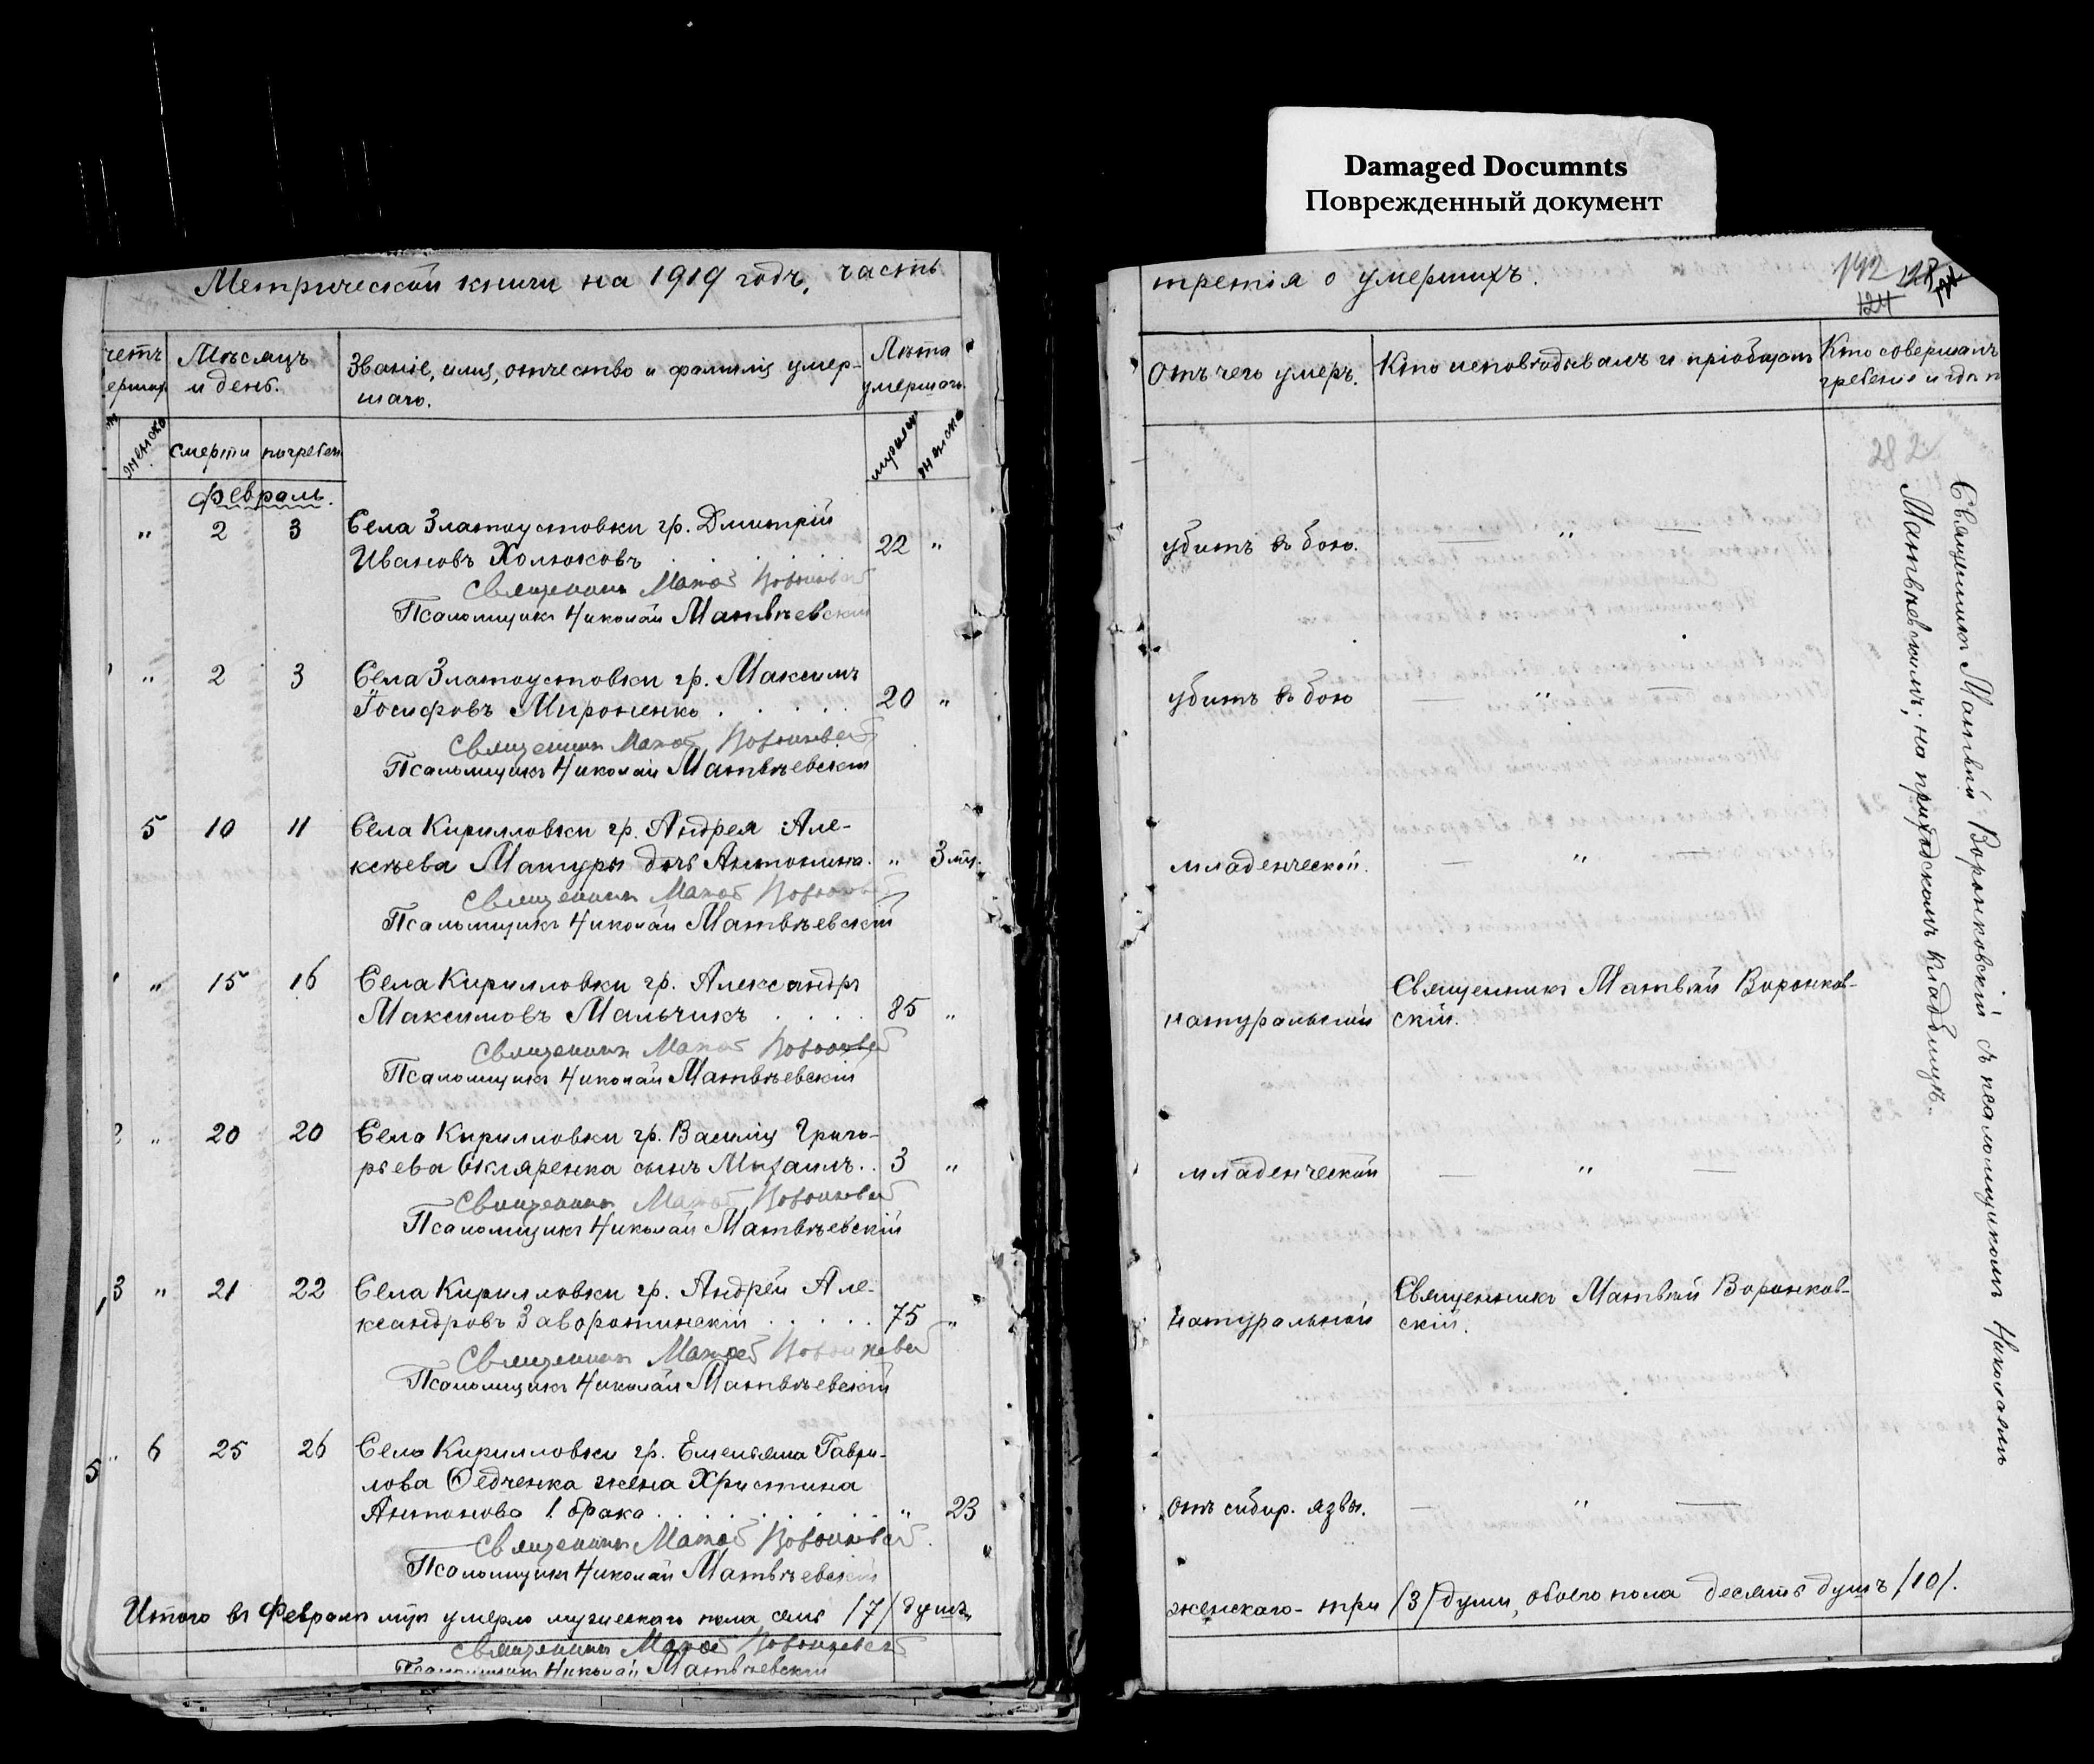 Damaged Documnts
Поврежденный документ
Метрической книги на 1919 годъ, часть
четъ
Мѣсяцъ
и день.
Званіе, имя, отчество и фамилія умер-
шаго.
Лѣта
умершаго
женска
смерти
погребен
мужеска
женска
Февраль.
" 2 3 Села Златоустовки гр. Дмитрій
Ивановъ Холюковъ . . . . . 22 "
Священникъ Матѳ
Псаломщикъ Николай Матвѣевскій
" 2 3 Села Златоустовки гр. Максимъ
Іосифовъ Мироненко . . . . . 20 "
Священникъ Матѳ
Псаломщикъ Николай Матвѣевскій
5 10 11 Села Кирилловки гр. Андрея Але-
ксѣева Мацуры дочь Антонина. " 3 мц.
Священникъ Матѳ
Псаломщикъ Николай Матвѣевскій
" 15 16 Села Кирилловки гр. Александръ
Максимовъ Мальчикъ . . . . 85 "
Священникъ Матѳ
Псаломщикъ Николай Матвѣевскій
2 " 20 20 Села Кирилловки гр. Василія Григо-
рьева Скляренка сынъ Михаилъ. . 3 "
Священникъ Матѳ
Псаломщикъ Николай Матвѣевскій
3 " 21 22 Села Кирилловки гр. Андрей Але-
ксандровъ Заворотинскій . . . . . 75 "
Священникъ Матѳ
Псаломщикъ Николай Матвѣевскій
5 " 6 25 26 Села Кирилловки гр. Емельяна Гаври-
лова Ѳедченка жена Христина
Антонова 1. брака . . . . . . . . " 23
Священникъ Матѳ
Псаломщикъ Николай Матвѣевскій
Итого въ Февралѣ мцѣ умерло мужескаго пола семь /7/ душъ,
Священникъ Матѳ
Псаломщикъ Николай Матвѣевскій
третія о умершихъ.
142 128
124
Отъ чего умеръ.
Кто исповѣдывалъ и пріобщалъ
Кто совершалъ
гребеніе и гдѣ п
282
убитъ въ бою. — " —
убитъ въ бою — " —
младенческой. — " —
натуральный
Священникъ Матвѣй Воронков-
скій.
младенческой — " —
натуральной
Священникъ Матвѣй Воронков-
скій.
отъ сибир. язвы. — " —
женскаго - три /3/ души, обоего пола десять душъ /10/.
Священникъ Матвѣй Воронковскій съ псаломщикомъ Николаемъ
Матвѣевскимъ, на приходскомъ кладбищѣ.